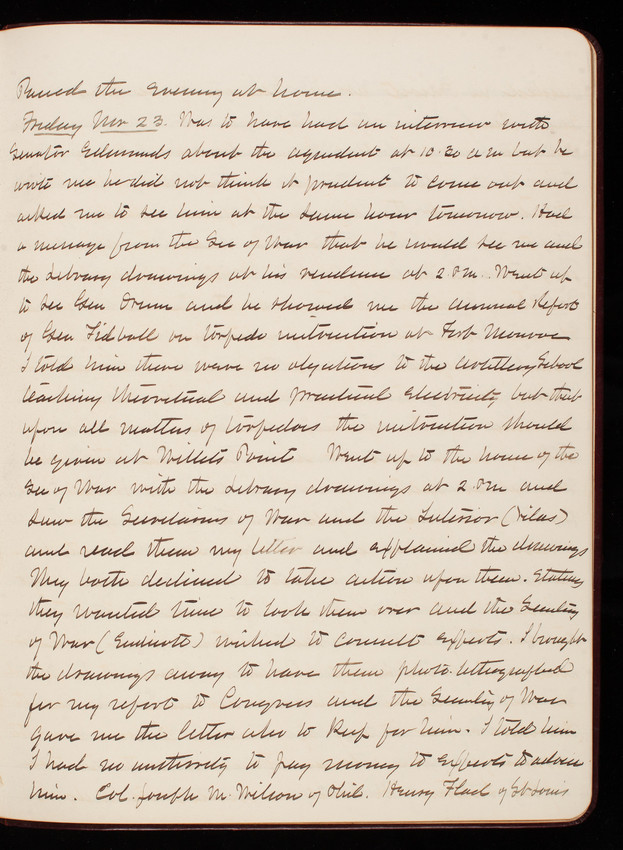 Passed the evening at home.
Friday Nov 23. Was to have had an interview with
Senator Edmunds about the aqueduct at 10.30 a m but he
wrote me he did not think it prudent to come out and
asked me to see him at the same hour tomorrow. Had
a message from the Sec of War that he would see me and
the Library drawings at his residence at 2 P.m. Went up
to see Gen Drum and he showed me the annual Report
of Gen Tidball on torpedo instruction at Fort Monroe
I told him there were no objections to the Artillery School
teaching theoretical and practical electricity but that
upon all matters of torpedoes the instruction should
be given at Willets Point Went up to the house of the
Sec of War with the Library drawings at 2 P m and
saw the Secretaries of War and the Interior (Vilas)
and read them my letter and explained the drawings
They both declined to take action upon them. Stating
they wanted time to look them over and the Secretary
of War (Endicott) wished to consult experts. I brought
the drawings away to have them photo-lithographed
for my report to Congress and the Secretary of War
gave me the letter also to keep for him. I told him
I had no authority to pay money to experts to advise
him. Col. Joseph M. Wilson of Phil. Henry Flad of St Louis